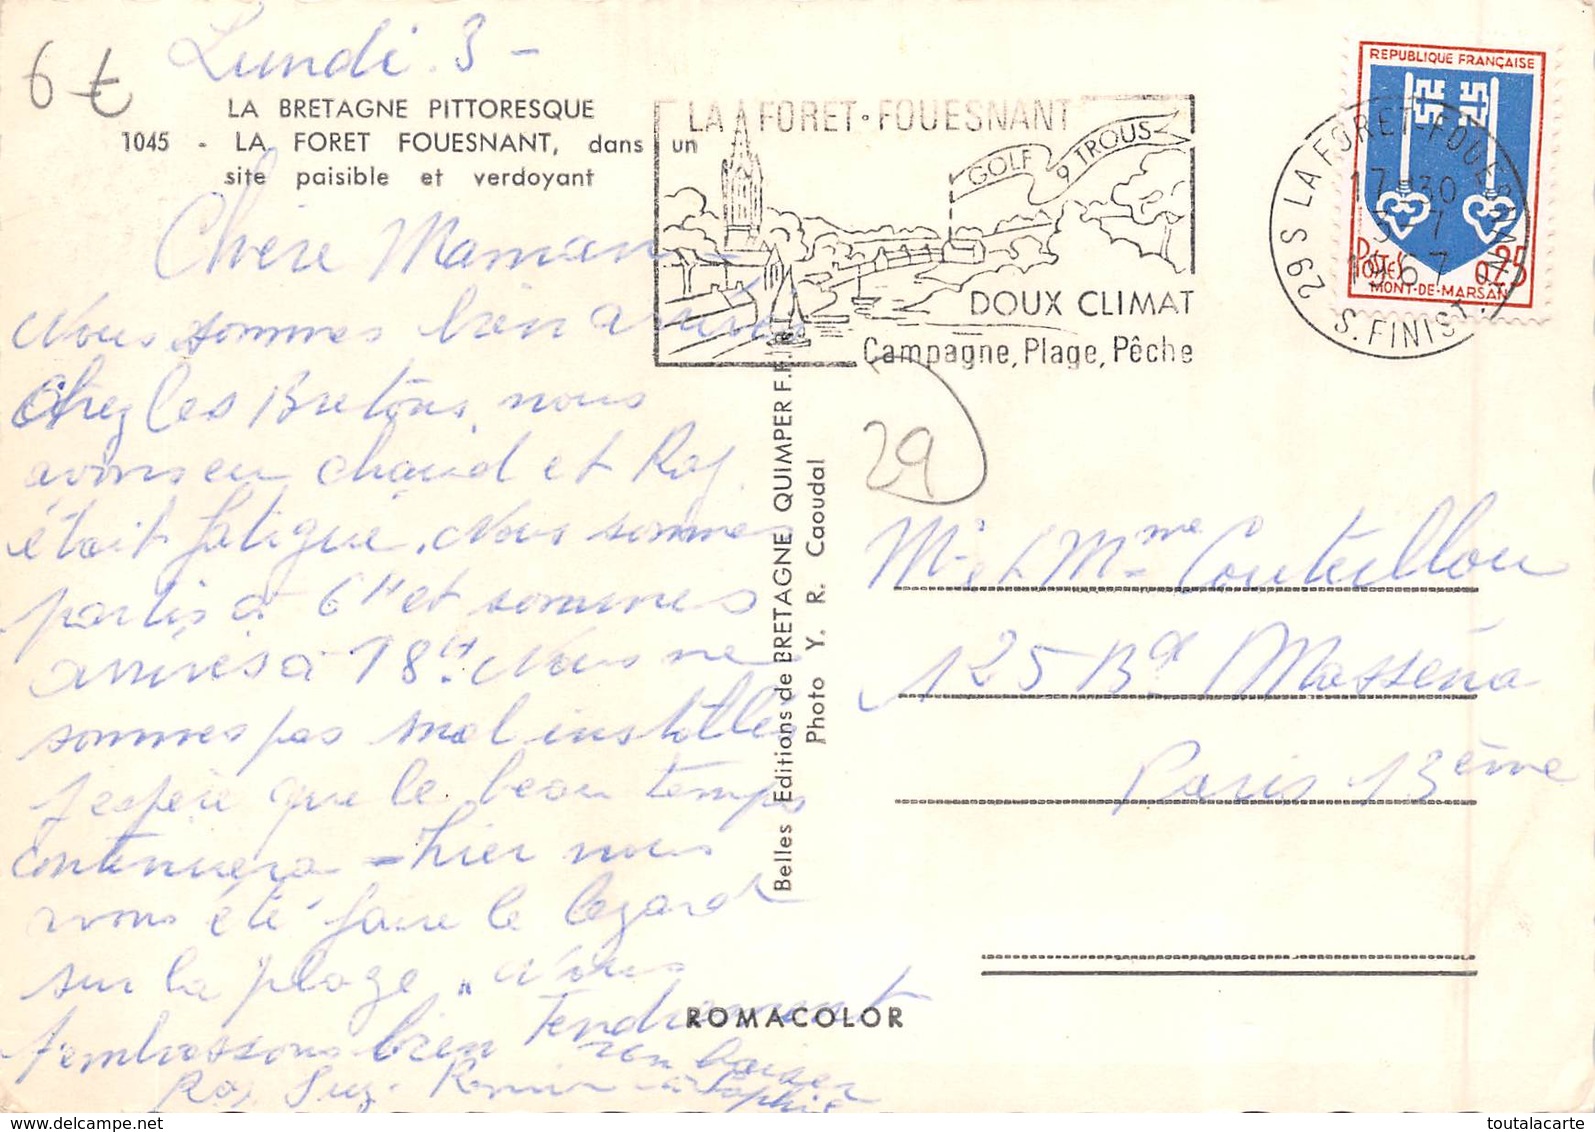 6 €
Lundi 3 -
LA BRETAGNE PITTORESQUE
1045 - LA FORET FOUESNANT, dans un
site paisible et verdoyant
Chère Maman
Nous sommes bien arrivés
Chez les Bretons, nous
avons eu chaud et Roy.
était fatigué. Nous sommes
partis à 6H et sommes
arrivés à 18H. Nous ne
sommes pas mal installés
J'espère que le beau temps
continuera - hier nous
avons été faire le lezard
sur la plage. Nous
t'embrassons bien Tendrement
Roy Suz -
à Sophie
LA FORET-FOUESNANT
GOLF 9 TROUS
DOUX CLIMAT
Campagne, Plage, Pêche
29S LA FORET-FOUESNANT
17-30
3-7
1967
S. FINIST.
REPUBLIQUE FRANÇAISE
POSTES 0,25
MONT-DE-MARSAN
29
Belles Editions de BRETAGNE QUIMPER F.
Photo Y. R. Caoudal
Mr et Mme Couteillou
125 Bd Masséna
Paris 13ème
ROMACOLOR
www.toutalacarte.com